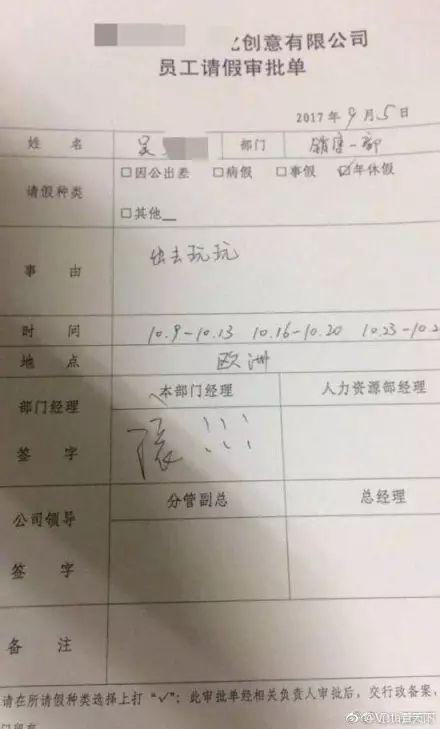 创意有限公司
员工请假审批单
2017年9月5日
姓 名 吴 部门 销售一部
请假种类 □因公出差 □病假 □事假 ☑年休假
□其他__
事 由 出去玩玩
时 间 10.9-10.13 10.16-10.20 10.23-10.2
地 点 欧洲
部门经理 本部门经理 人力资源部经理
签 字 !!!
公司领导 分管副总 总经理
签 字
备 注
请在所请假种类选择上打“√”；此审批单经相关负责人审批后，交行政备案，